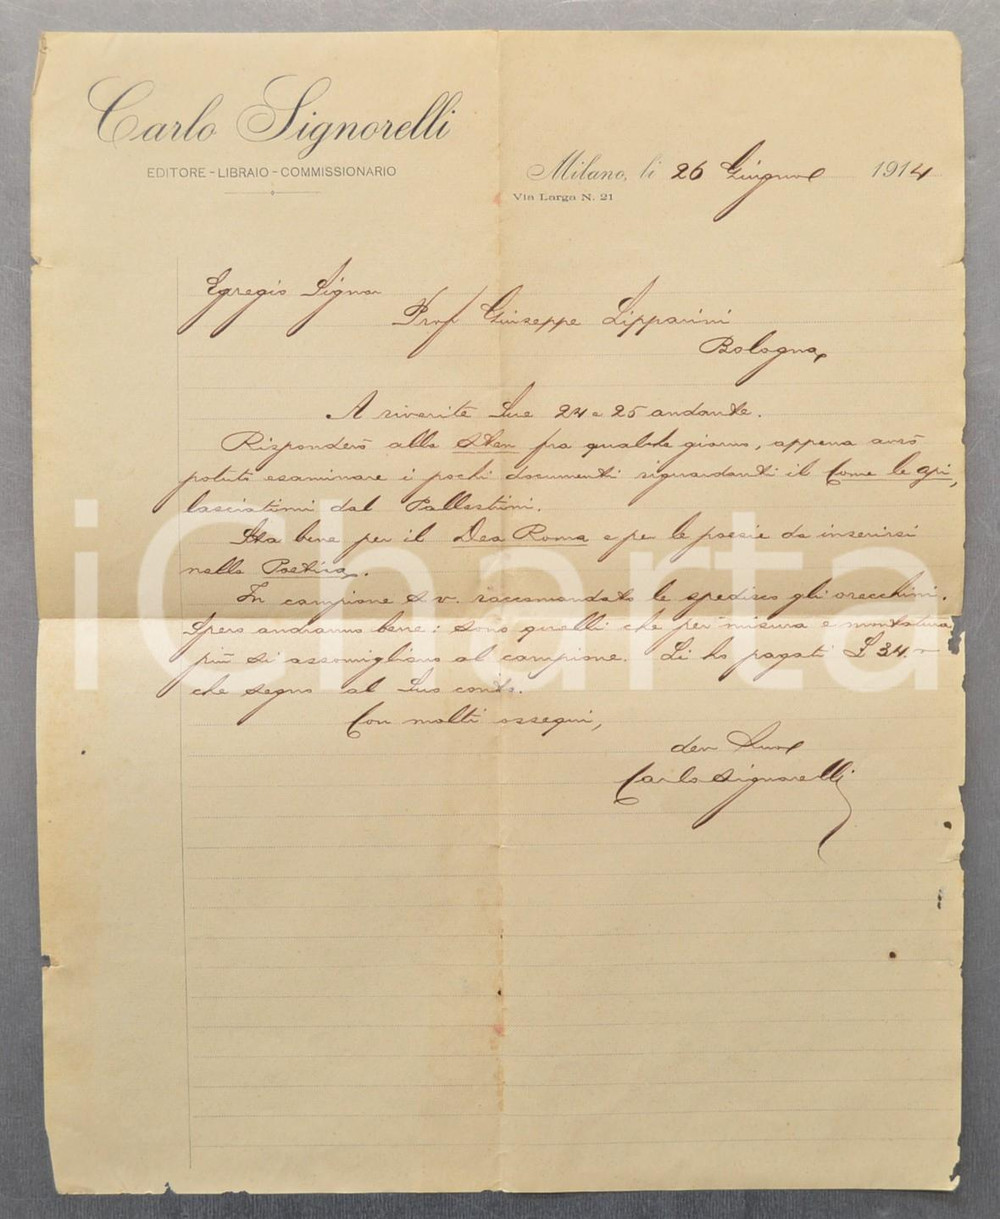 Carlo Signorelli
EDITORE - LIBRAIO - COMMISSIONARIO
Milano, li 26 Giugno 1914
Via Larga N. 21
Egregio Signor
Prof Giuseppe Lipparini
Bologna
A riverite Sue 24 e 25 andante.
Risponderò alla Sten fra qualche giorno, appena avrò
potuto esaminare i pochi documenti riguardanti il Come le gri,
lasciatimi dal Pallestrini.
Sta bene per il Dea Roma e per le poesie da inserirsi
nella Poetica.
In campione s. v. raccomandato le spedisco gli orecchini.
Spero andranno bene: sono quelli che per misura e montatura
più si assomigliano al campione. Li ho pagati £ 34.-
che segno al Suo conto.
Con molti ossequi,
dev Suo
Carlo Signorelli
iCharta